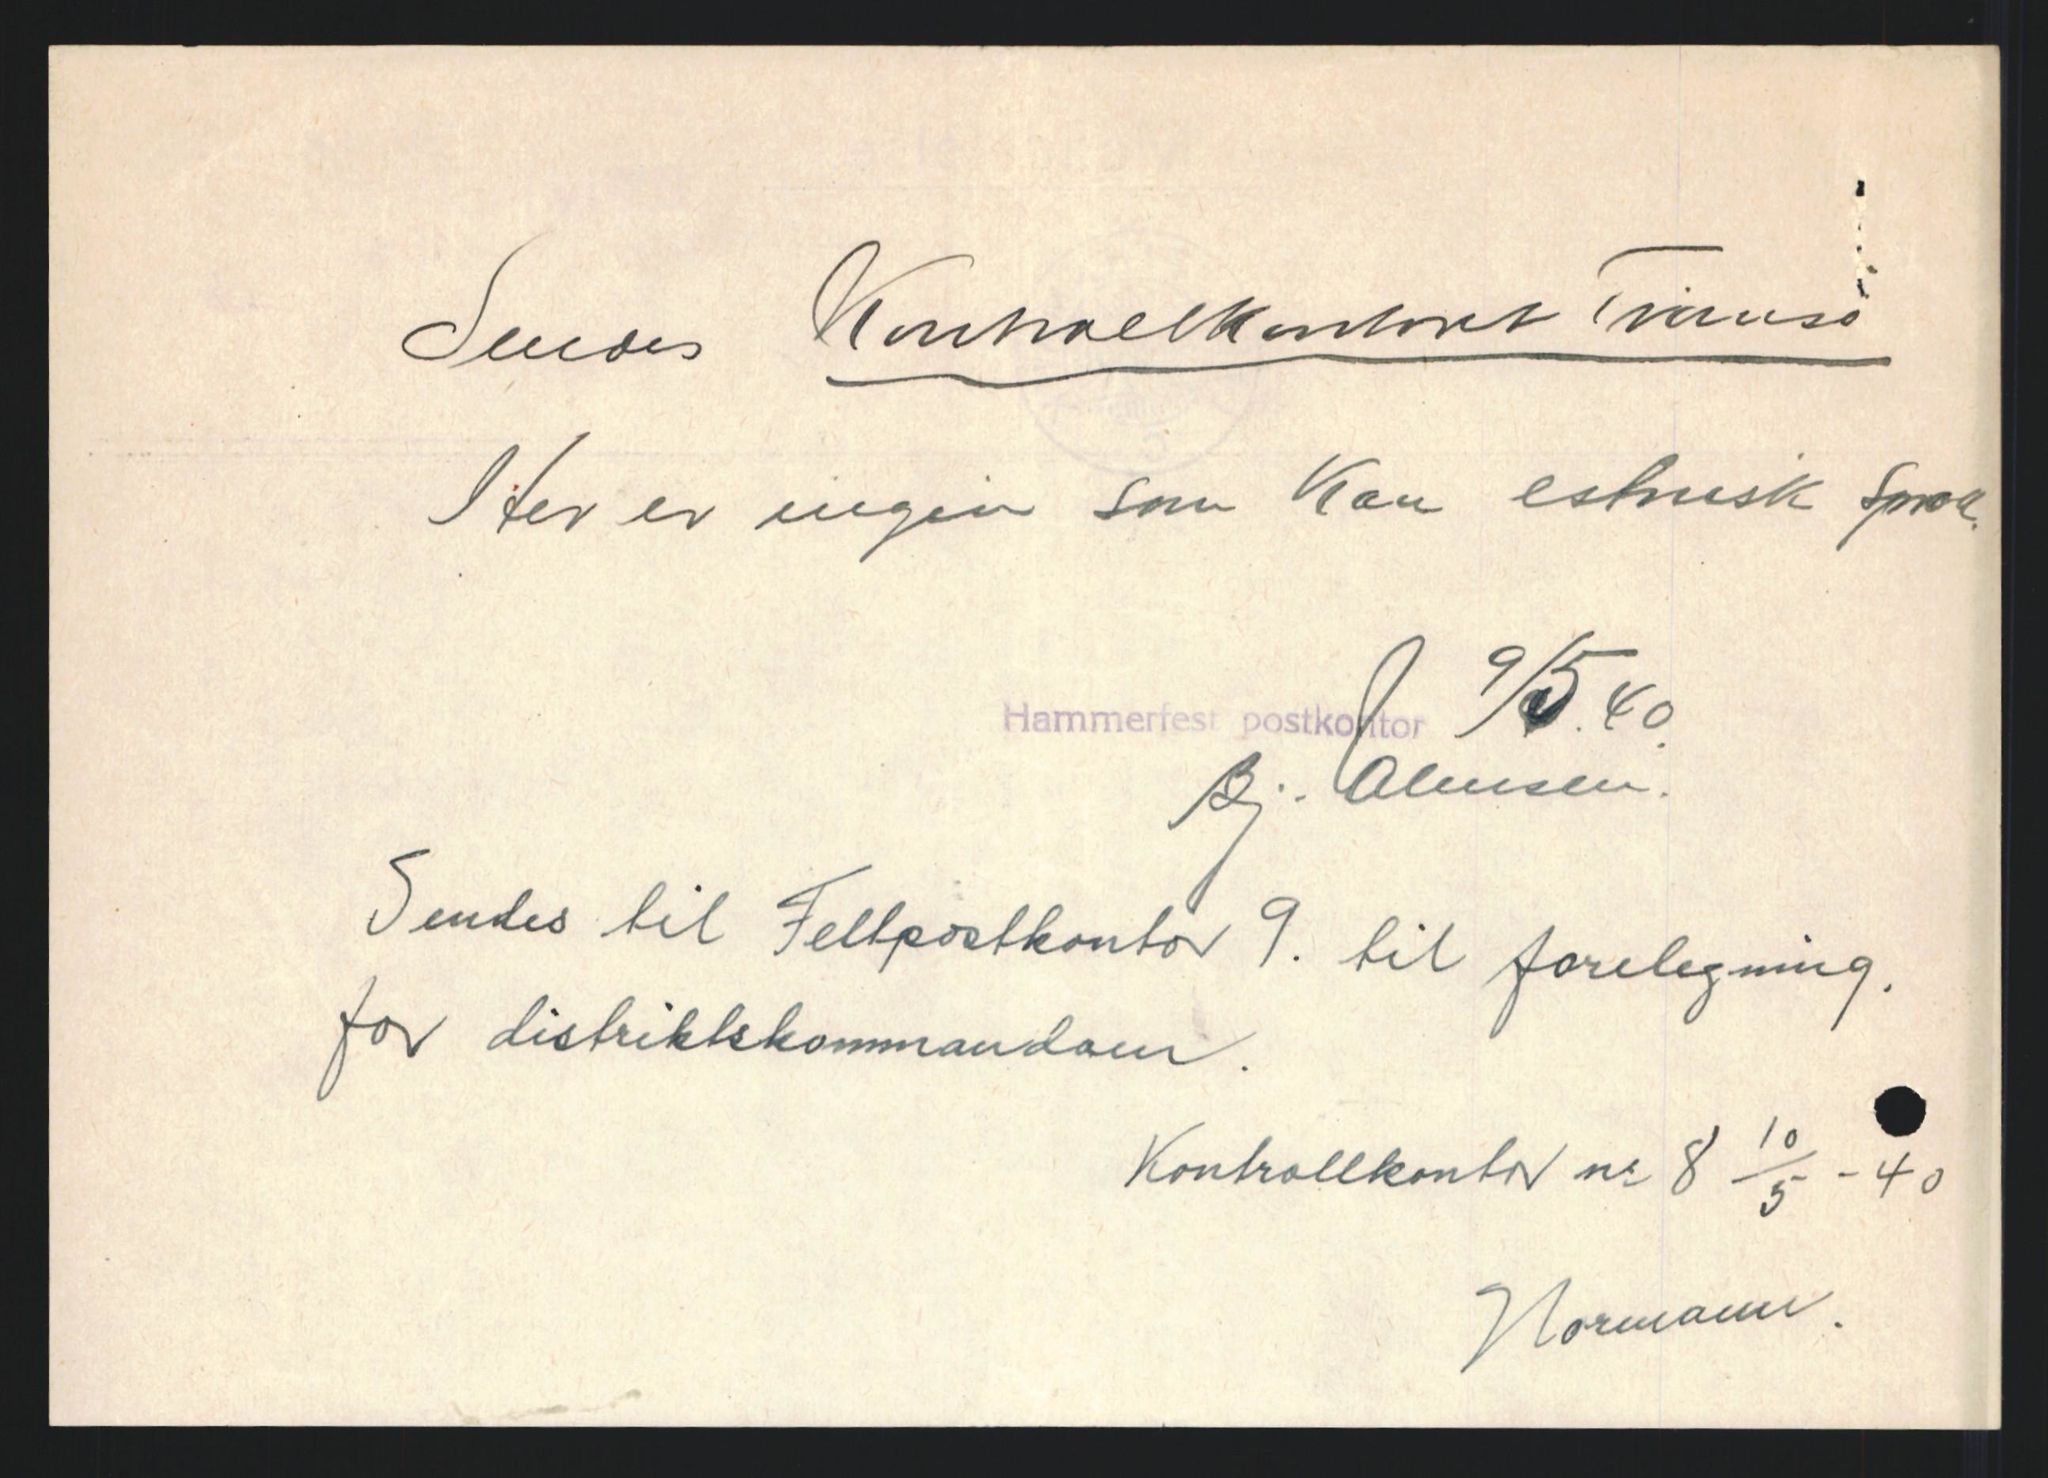 Sendes Kontrollkontoret Tromsø
Her er ingen som kan estnisk sprok.
Hammerfest postkontor 9/5. 40.
Bj.
Sendes til Feltpostkontor 9. til forelegning.
for distriktskommandoen.
Kontrollkontor nr 8 10/5 - 40
Normann.